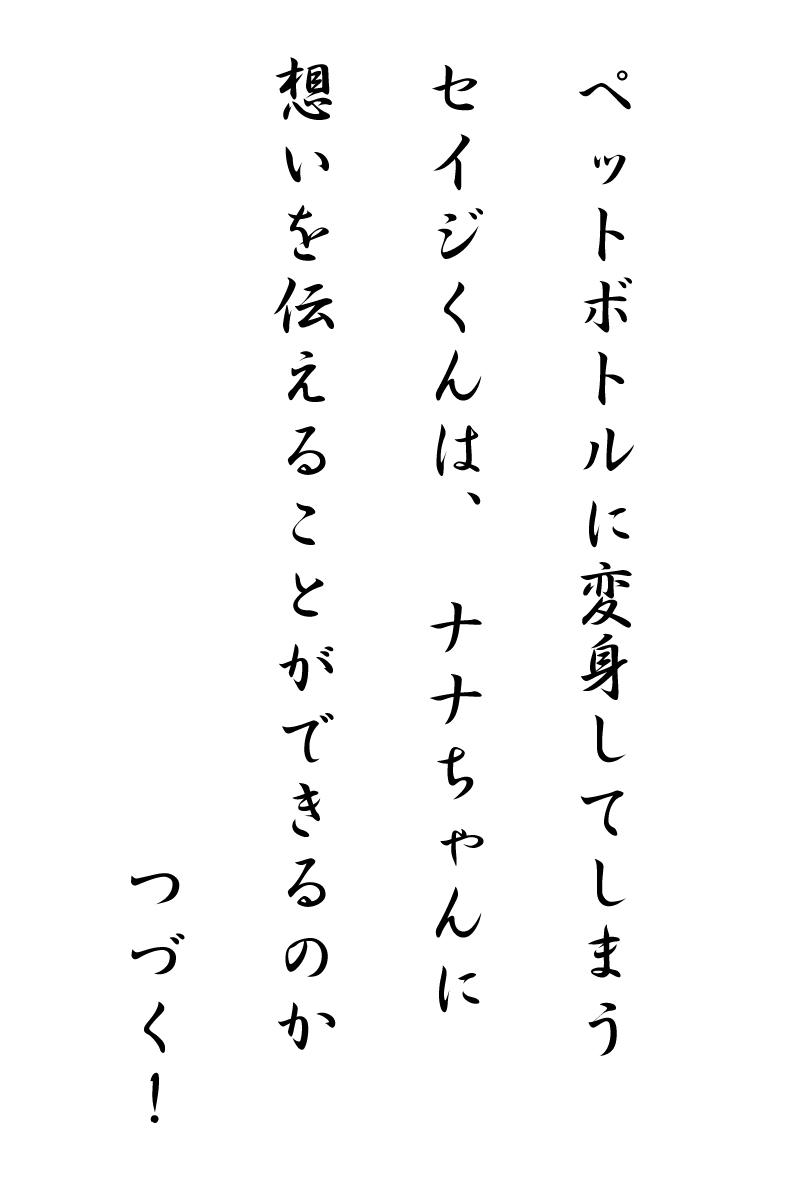 ペットボトルに変身してしまう
セイジくんは、 ナナちゃんに
想いを伝えることができるのか
つづく！